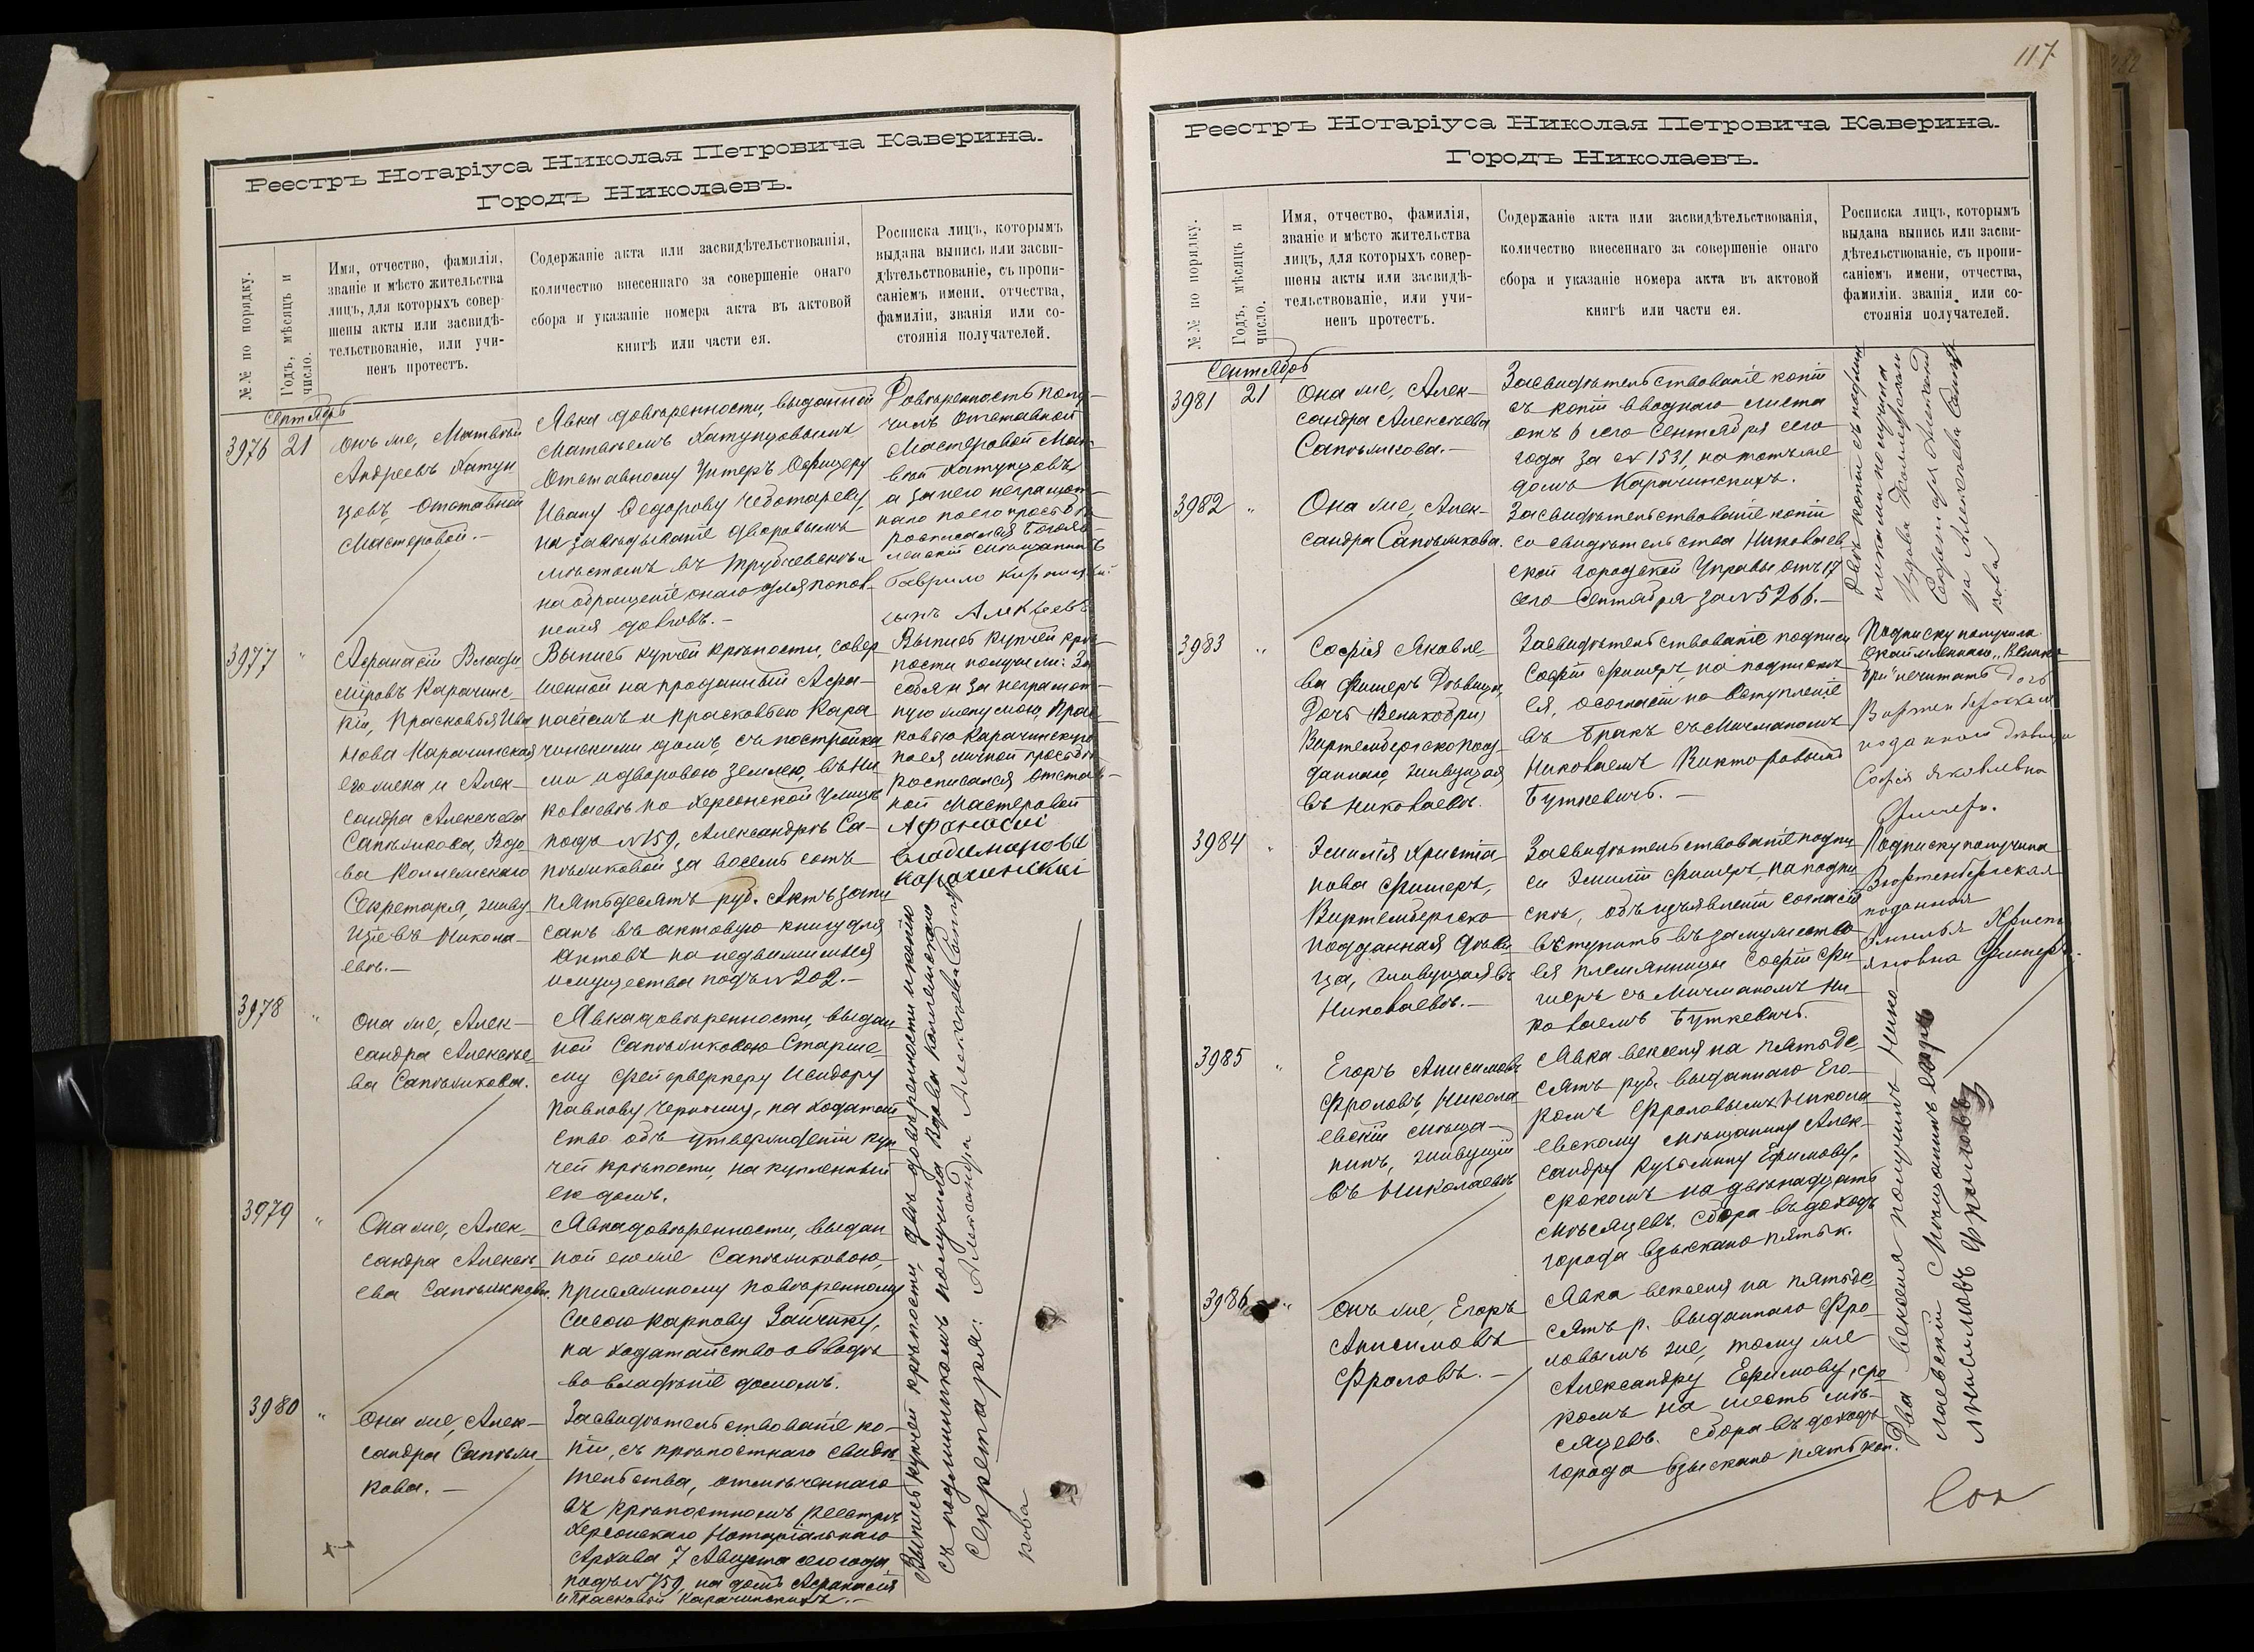 Реестръ Нотаріуса Николая Петровича Каверина.
Городъ Николаевъ.
№№ по порядку.
Годъ, мѣсяцъ и
число.
Имя, отчество, фамилія,
званіе и мѣсто жительства
лицъ, для которыхъ совер-
шены акты или засвидѣ-
тельствованіе, или учи-
ненъ протестъ.
Содержаніе акта или засвидѣтельствованія,
количество внесеннаго за совершеніе онаго
сбора и указаніе номера акта въ актовой
книгѣ или части ея.
Росписка лицъ, которымъ
выдана выпись или засви-
дѣтельствованіе, съ пропи-
саніемъ имени, отчества,
фамиліи, званія или со-
стоянія получателей.
Сентябрь
3976
21
Онъ же, Матвѣй
Андреевъ Катун
цовъ, Отставной
Мастеровой. —
Явка довѣренности, выданной
Матвѣемъ Катунцовымъ
Отставному Унтеръ Офицеру
Ивану Ѳедорову Чеботареву,
на завѣдываніе дворовымъ
мѣстомъ въ
на обращеніе онаго для попол-
ненія долговъ. —
Довѣренность полу-
чилъ Отставной
Мастеровой Мат-
вѣй Катунцовъ,
а за него неграмот-
наго по его просьбѣ
росписался
мѣщанинъ
Гаврило
сынъ Алексѣевъ
3977
"
Афанасій Влади
міровъ Карачинс
кій, Прасковья Ива
нова Карачинская
его жена и Алек-
сандра Алексѣева
Сапѣжикова, Вдо
ва Коллежскаго
Секретаря, живу
щіе въ Никола-
евѣ. —
Выпись купчей крѣпости, совер
шенной на проданный Афа-
насіемъ и Прасковьею Кара
чинскими домъ, съ постройка
ми и дворовою землею, въ Ни
колаевѣ по Херсонской улицѣ
подъ № 159, Александрѣ Са-
пѣжиковой за восемь сотъ
пятьдесятъ руб. Актъ запи
санъ въ актовую книгу для
актовъ на недвижимыя
имущества подъ № 202. —
Выпись купчей крѣ-
пости получили: За
себя и за неграмот-
ную жену мою, Прас
ковью Карачинскую
по ея личной просьбѣ
росписался Отстав-
ной Мастеровой
Афанасій
Владимировъ
Карачинскій
3978
"
Она же, Алек-
сандра Алексѣе
ва Сапѣжикова.
Явка довѣренности, выдан
ной Сапѣжиковою Старше
му Фейерверкеру Исидору
Павлову Черному, на ходатай
ство объ утвержденіи куп
чей крѣпости, на купленный
ею домъ.
3979
"
Она же, Алек-
сандра Алексѣ-
ева Сапѣжикова.
Явка довѣренности, выдан
ной ею же Сапѣжиковою,
Присяжному Повѣренному
Сысою Карпову Зайчику,
на ходатайство о вводѣ
во владѣніе домомъ.
3980
"
Она же, Алек-
сандра Сапѣжи-
кова. —
Засвидѣтельствованіе ко-
піи, съ крѣпостнаго свидѣ
тельства, отмѣченнаго
въ крѣпостномъ реестрѣ
Херсонскаго Нотаріальнаго
Архива 7 Августа сего года
подъ № 759, на домъ Афанасія
и Прасковьи Карачинскихъ. —
Выпись купчей крѣпости, двѣ довѣренности и копію
съ подлинникомъ получила Вдова Коллежскаго
Секретаря: Александра Алексѣева Сапѣжи
кова
117
Реестръ Нотаріуса Николая Петровича Каверина.
Городъ Николаевъ.
№№ по порядку.
Годъ, мѣсяцъ и
число.
Имя, отчество, фамилія,
званіе и мѣсто жительства
лицъ, для которыхъ совер-
шены акты или засвидѣ-
тельствованіе, или учи-
ненъ протестъ.
Содержаніе акта или засвидѣтельствованія,
количество внесеннаго за совершеніе онаго
сбора и указаніе номера акта въ актовой
книгѣ или части ея.
Росписка лицъ, которымъ
выдана выпись или засви-
дѣтельствованіе, съ пропи-
саніемъ имени, отчества,
фамиліи, званія или со-
стоянія получателей.
Сентябрь
3981
21
Она же, Алек-
сандра Алексѣева
Сапѣжикова. —
Засвидѣтельствованіе копіи
съ копіи вводнаго листа
отъ 6 сего Сентября сего
года за № 1531, на тотъ же
домъ Карачинскихъ.
3982
"
Она же, Алек-
сандра Сапѣжикова.
Засвидѣтельствованіе копіи
со свидѣтельства Николаев-
ской Городской Управы отъ 17
сего Сентября за № 5266. —
Двѣ копіи съ подлин
никами получила
Вдова Коллежскаго
Секретаря Александ
ра Алексѣева Сапѣжи
кова
3983
"
Софія Яковле-
ва Фишеръ, Дѣвица,
Дочь (Великобри)
Виртембергско под-
даннаго, живущая
въ Николаевѣ.
Засвидѣтельствованіе подписи
Софіи Фишеръ, на подпискѣ
ея, о согласіи на вступленіе
въ бракъ съ Мичманомъ
Николаемъ Викторовымъ
Буткевичъ. —
Подписку получила
Окаймленнаго „Велико
бри" не читать дочь
Виртембергскаго
подданнаго дѣвица
Софія Яковлевна
Фишеръ.
3984
"
Эмилія Христіа-
нова Фишеръ,
Виртембергско
подданная дѣви
ца, живущая въ
Николаевѣ. —
Засвидѣтельствованіе подпи
си Эмиліи Фишеръ, на подпи
скѣ, объ изъявленіи согласія
вступить въ замужество
ея племянницы Софіи Фи-
шеръ съ Мичманомъ Ни-
колаемъ Буткевичъ.
Подписку получила
Виртенбергская
поданная
Эмилья Христи
яновна Фишеръ.
3985
"
Егоръ Анисимовъ
Фроловъ, Никола
евскій мѣща-
нинъ, живущій
въ Николаевѣ
Явка векселя на пятьде
сятъ руб. выданнаго Его-
ромъ Фроловымъ Никола
евскому мѣщанину Алек-
сандру Кузьмину Ефимову,
срокомъ на двѣнадцать
мѣсяцевъ. Сбора въ доходъ
города взыскано пять к.
3986
"
Онъ же, Егоръ
Анисимовъ
Фроловъ. —
Явка векселя на пятьде
сятъ р. выданнаго Фро-
ловымъ же, тому же
Александру Ефимову, сро
комъ на шесть мѣ-
сяцевъ. Сбора въ доходъ
города взыскано пять коп.
Два векселя получилъ Нико
лаевскій Мѣщанинъ Егоръ
Анисимовъ Фроловъ